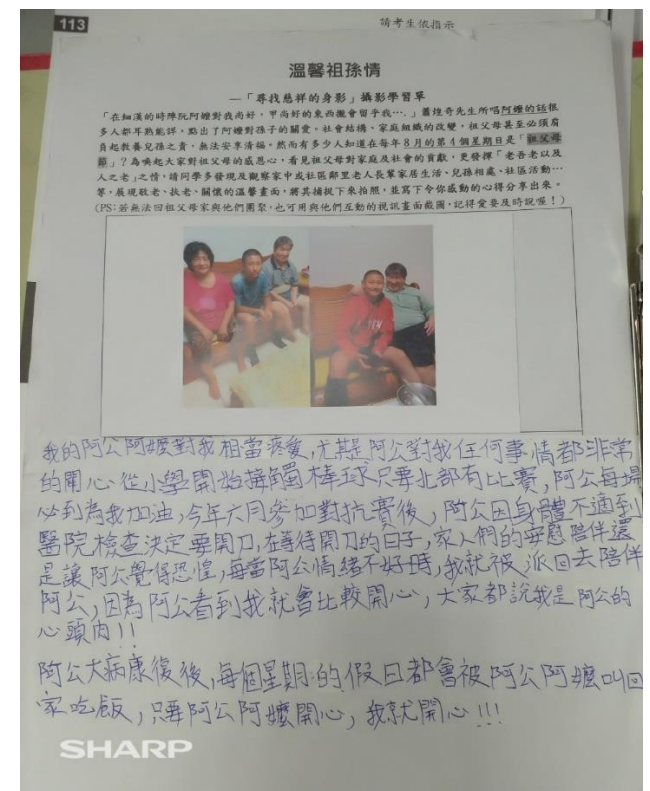 113
請考生依指示
溫馨祖孫情
—「尋找慈祥的身影」攝影學習單
「在細漢的時陣阮阿嬤對我尚好,甲尚好的東西攏會留乎我…」蕭煌奇先生所唱阿嬤的話很
多人都耳熟能詳,點出了阿嬤對孫子的關愛。社會結構、家庭組織的改變,祖父母甚至必須肩
負起教養兒孫之責,無法安享清福。然而有多少人知道在每年8月的第4個星期日是「祖父母
節」?為喚起大家對祖父母的感恩心,看見祖父母對家庭及社會的貢獻,更發揮「老吾老以及
人之老」之情,請同學多發現及觀察家中或社區鄰里老人長輩家居生活、兒孫相處、社區活動…
等,展現敬老、扶老、關懷的溫馨畫面,將其捕捉下來拍照,並寫下令你感動的心得分享出來。
(PS:若無法回祖父母家與他們團聚,也可用與他們互動的視訊畫面截圖,記得愛要及時說喔!)
我的阿公阿嬤對我相當疼愛,尤其是阿公對我任何事情都非常
的關心從小學開始接觸棒球只要北部有比賽,阿公每場
必到為我加油,今年六月參加對抗賽後,阿公因身體不適到
醫院檢查決定要開刀,在等待開刀的日子,家人們的安慰陪伴還
是讓阿公覺得恐惶,每當阿公情緒不好時,我就被派回去陪伴
阿公,因為阿公看到我就會比較開心,大家都說我是阿公的
心頭肉!!
阿公大病康復後,每個星期的假日都會被阿公阿嬤叫回
家吃飯,只要阿公阿嬤開心,我就開心!!!
SHARP